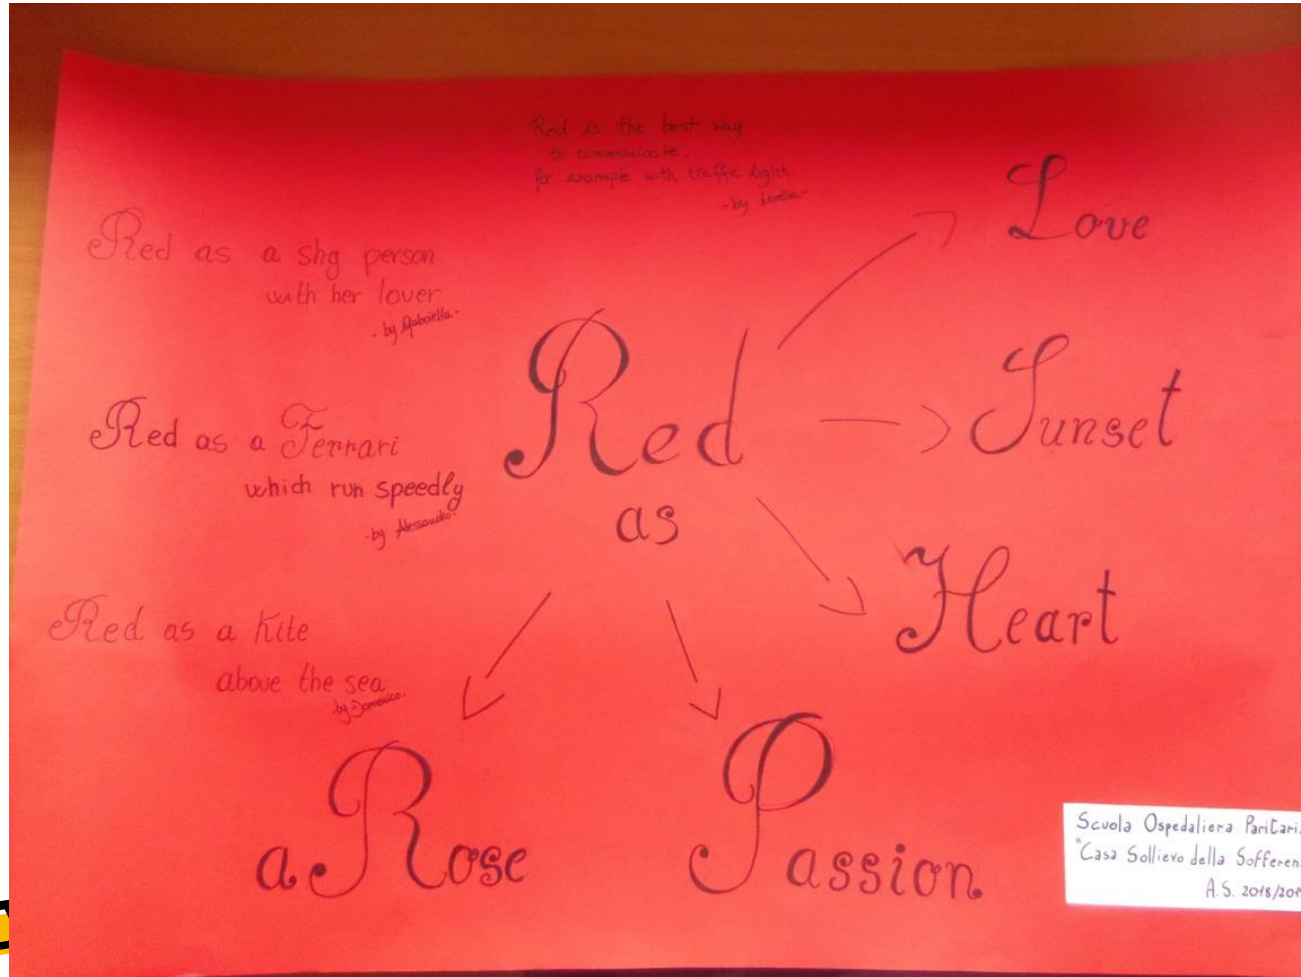 Red is the best way
to communicate,
for example with traffic light.
-by Lorella-
Red as a shy person
with her lover
-by Gabriella-
Red as a Ferrari
which run speedly
-by Alessandro-
Red as a kite
above the sea
-by Domenico-
Red
as
Love
Sunset
Heart
a Rose
Passion
Scuola Ospedaliera Paritari
"Casa Sollievo della Sofferen
A.S. 2018/201